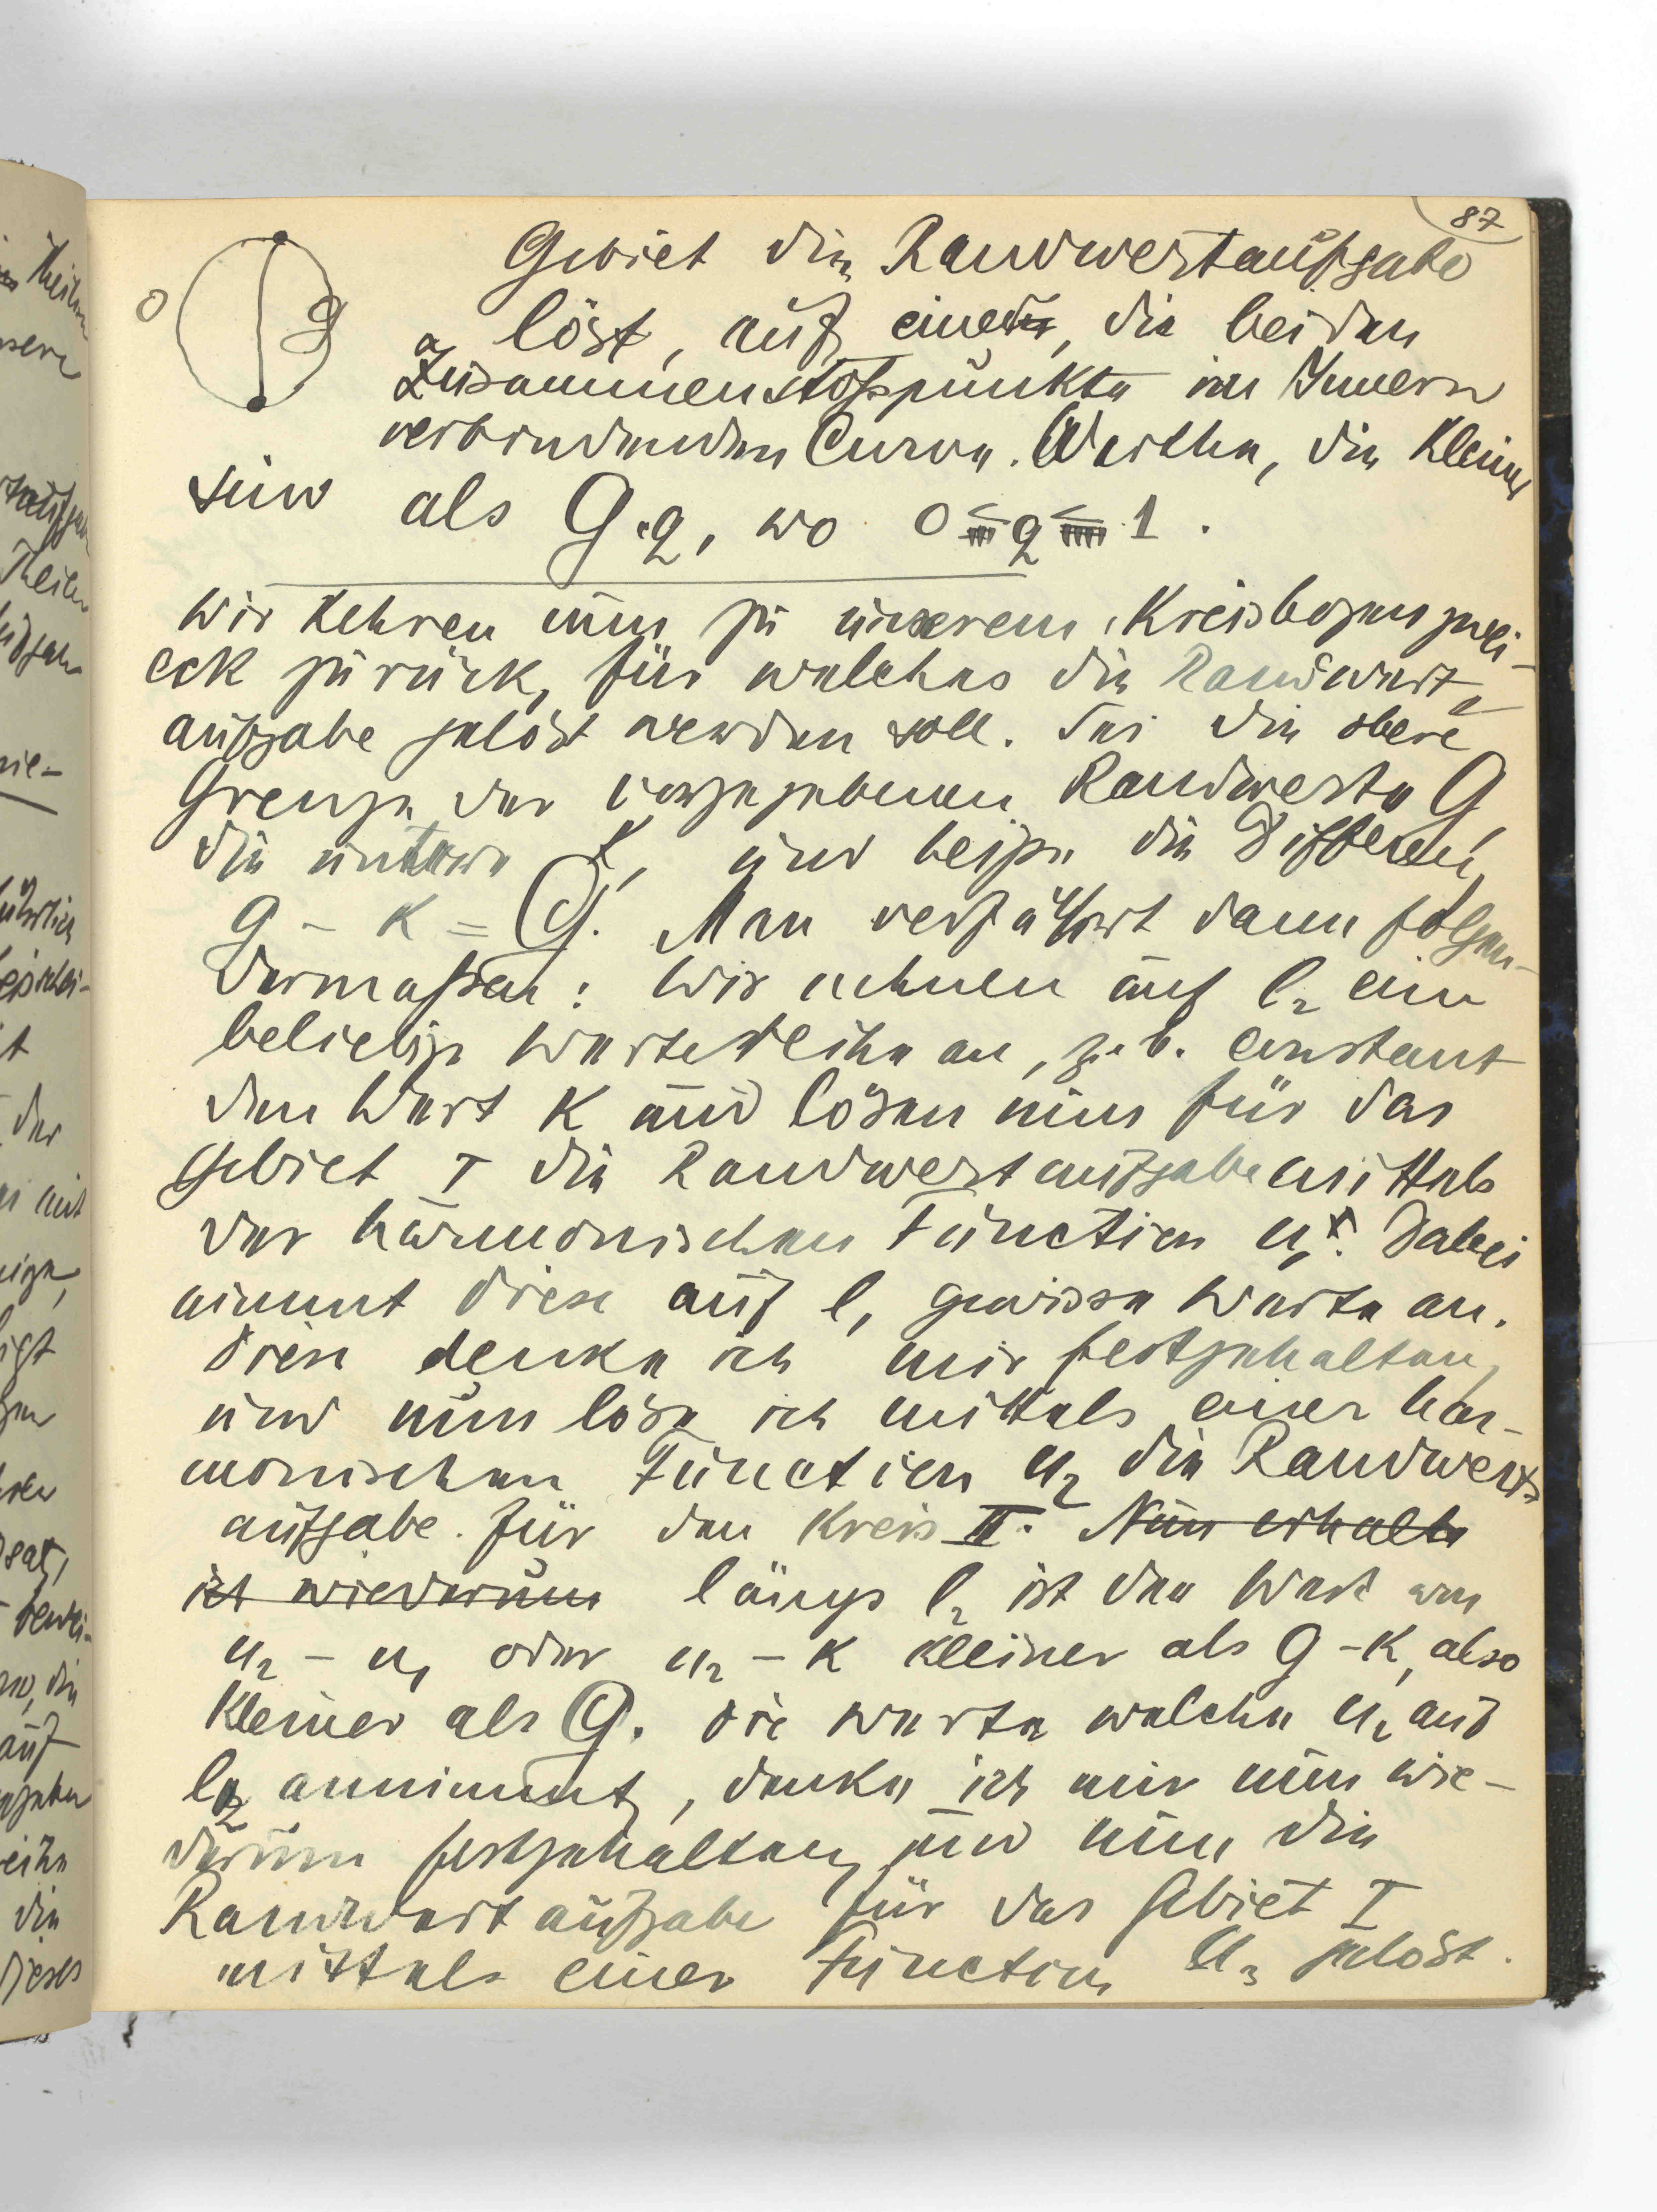 87
Gebiet die Randwertaufgabe
0 G löst, auf einer, die beiden
Zusammenstoßpunkte im Innern
verbindenden Curve. Werthe, die kleiner
sind als G·q, wo 0 < q < 1.
Wir kehren nun zu unserem Kreisbogenzwei-
eck zurück, für welches die Randwert-
aufgabe gelöst werden soll. Sei die obere
Grenze der vorgegebenen Randwerte G,
die untere K, und heiße die Differenz
G - K = G. Man verfährt dann folgen-
dermaßen: Wir nehmen auf l₂ eine
beliebige Wertereihe an, z. b. constant
den Wert K und lösen nun für das
Gebiet I die Randwertaufgabe mittels
der harmonischen Function u₁ˣ. Dabei
nimmt diese auf l₁ gewisse Werte an.
Diese denke ich mir festgehalten,
und nun löse ich mittels einer har-
monischen Function u₂ die Randwert-
aufgabe für den Kreis II. Nun erhalte
ich wiederum längs l₂ ist der Wert von
u₂ - u₁ oder u₂ - K kleiner als G - K, also
kleiner als G. Die Werte welche u₂ auf
l₂ annimmt, denke ich mir nun wie-
derum festgehalten, und nun die
Randwertaufgabe für das Gebiet I
mittels einer Function u₃ gelöst.